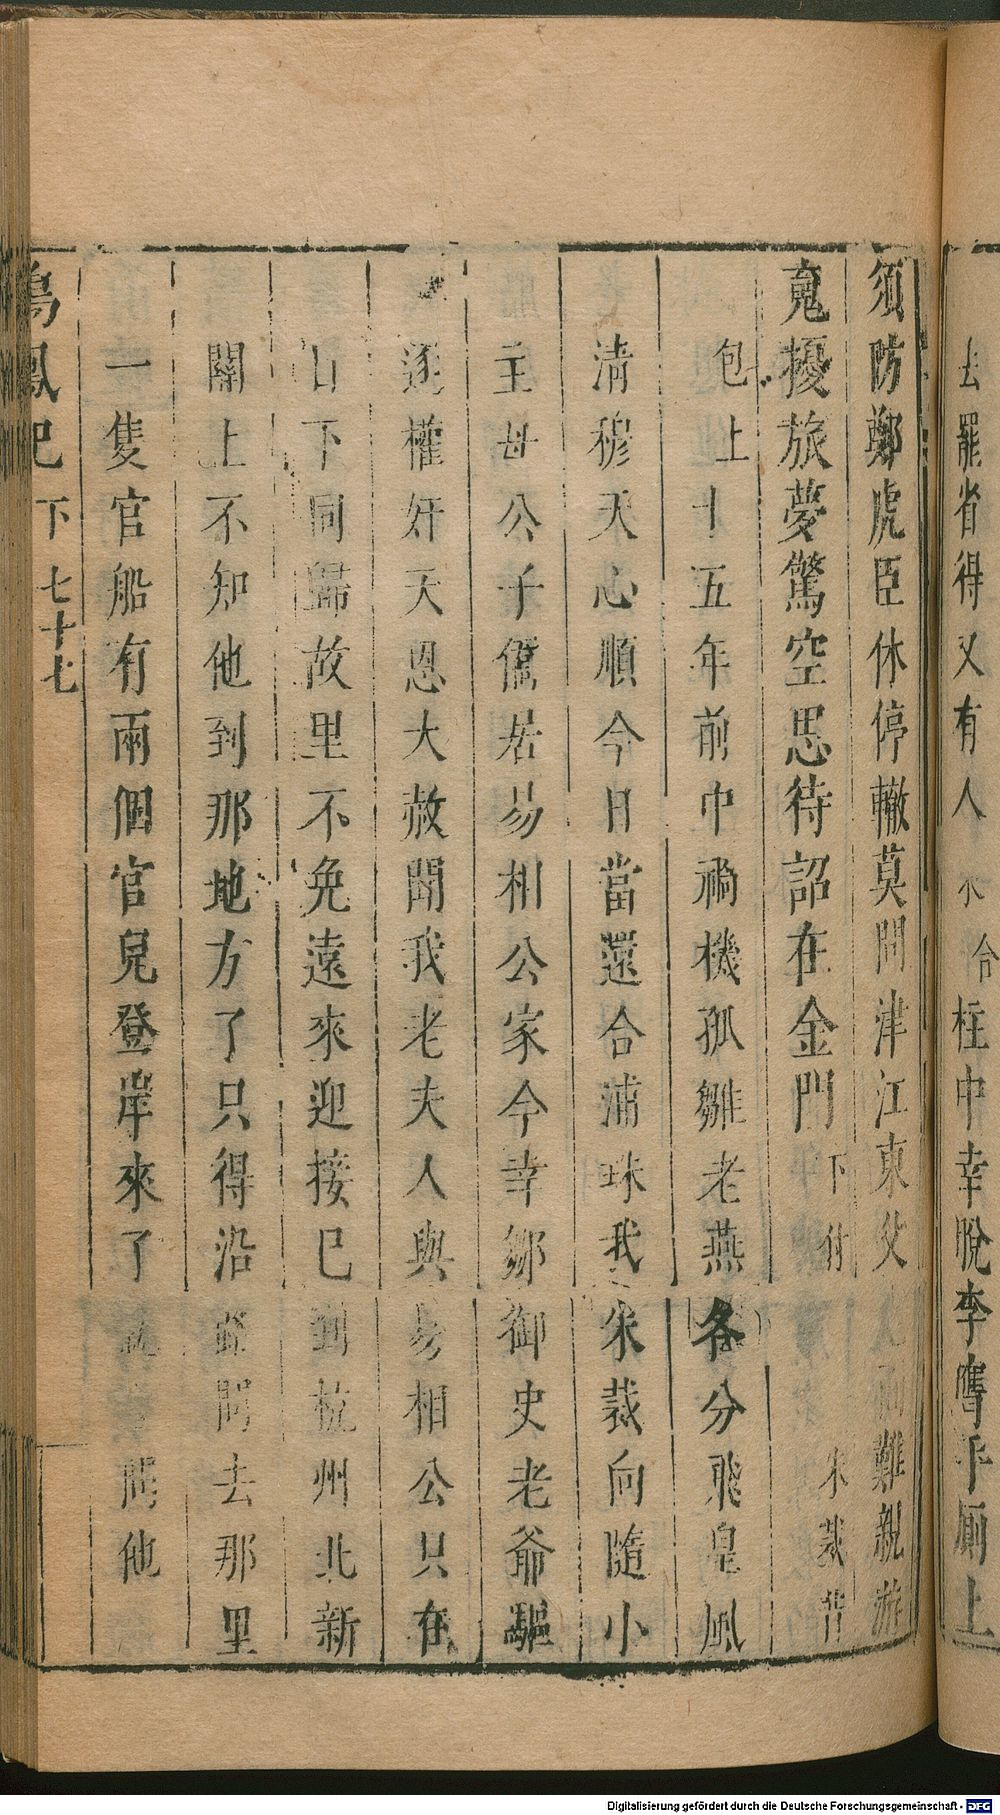 去罷省得又有人 合 枉中幸脫李鷹手廁上
須防鄭虎臣休停轍莫問津江東父 難親游
䰟擾旅夢驚空思待詔在金門 下 付 朱裁昔
包上 十五年前中禍機孤雛老燕各分飛皇風
清穆天心順今日當還合浦珠我朱裁向隨小
主母公子僑居易相公家今幸鄒御史老爺驅
逐權奸天恩大赦聞我老夫人與易相公只在
山下同歸故里不免遠來迎接已到杭州北新
關上不知他到那地方了只得沿 問去那里
一隻官船有兩個官兒登岸來了 問他
鳥鳳記 下 七十七
Digitalisierung gefördert durch die Deutsche Forschungsgemeinschaft - DFG